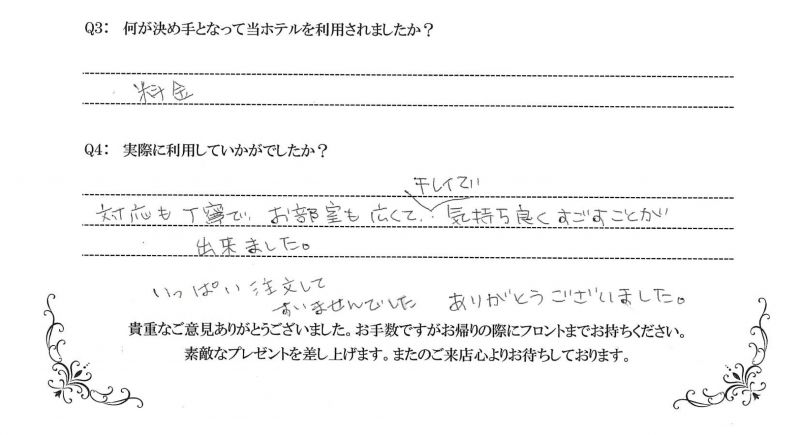 Q3： 何が決め手となって当ホテルを利用されましたか？
料金
Q4： 実際に利用していかがでしたか？
キレイで
対応も丁寧で、お部屋も広くて、気持ち良くすごすことが
出来ました。
いっぱい注文して
すいませんでした ありがとうございました。
貴重なご意見ありがとうございました。お手数ですがお帰りの際にフロントまでお持ちください。
素敵なプレゼントを差し上げます。またのご来店心よりお待ちしております。